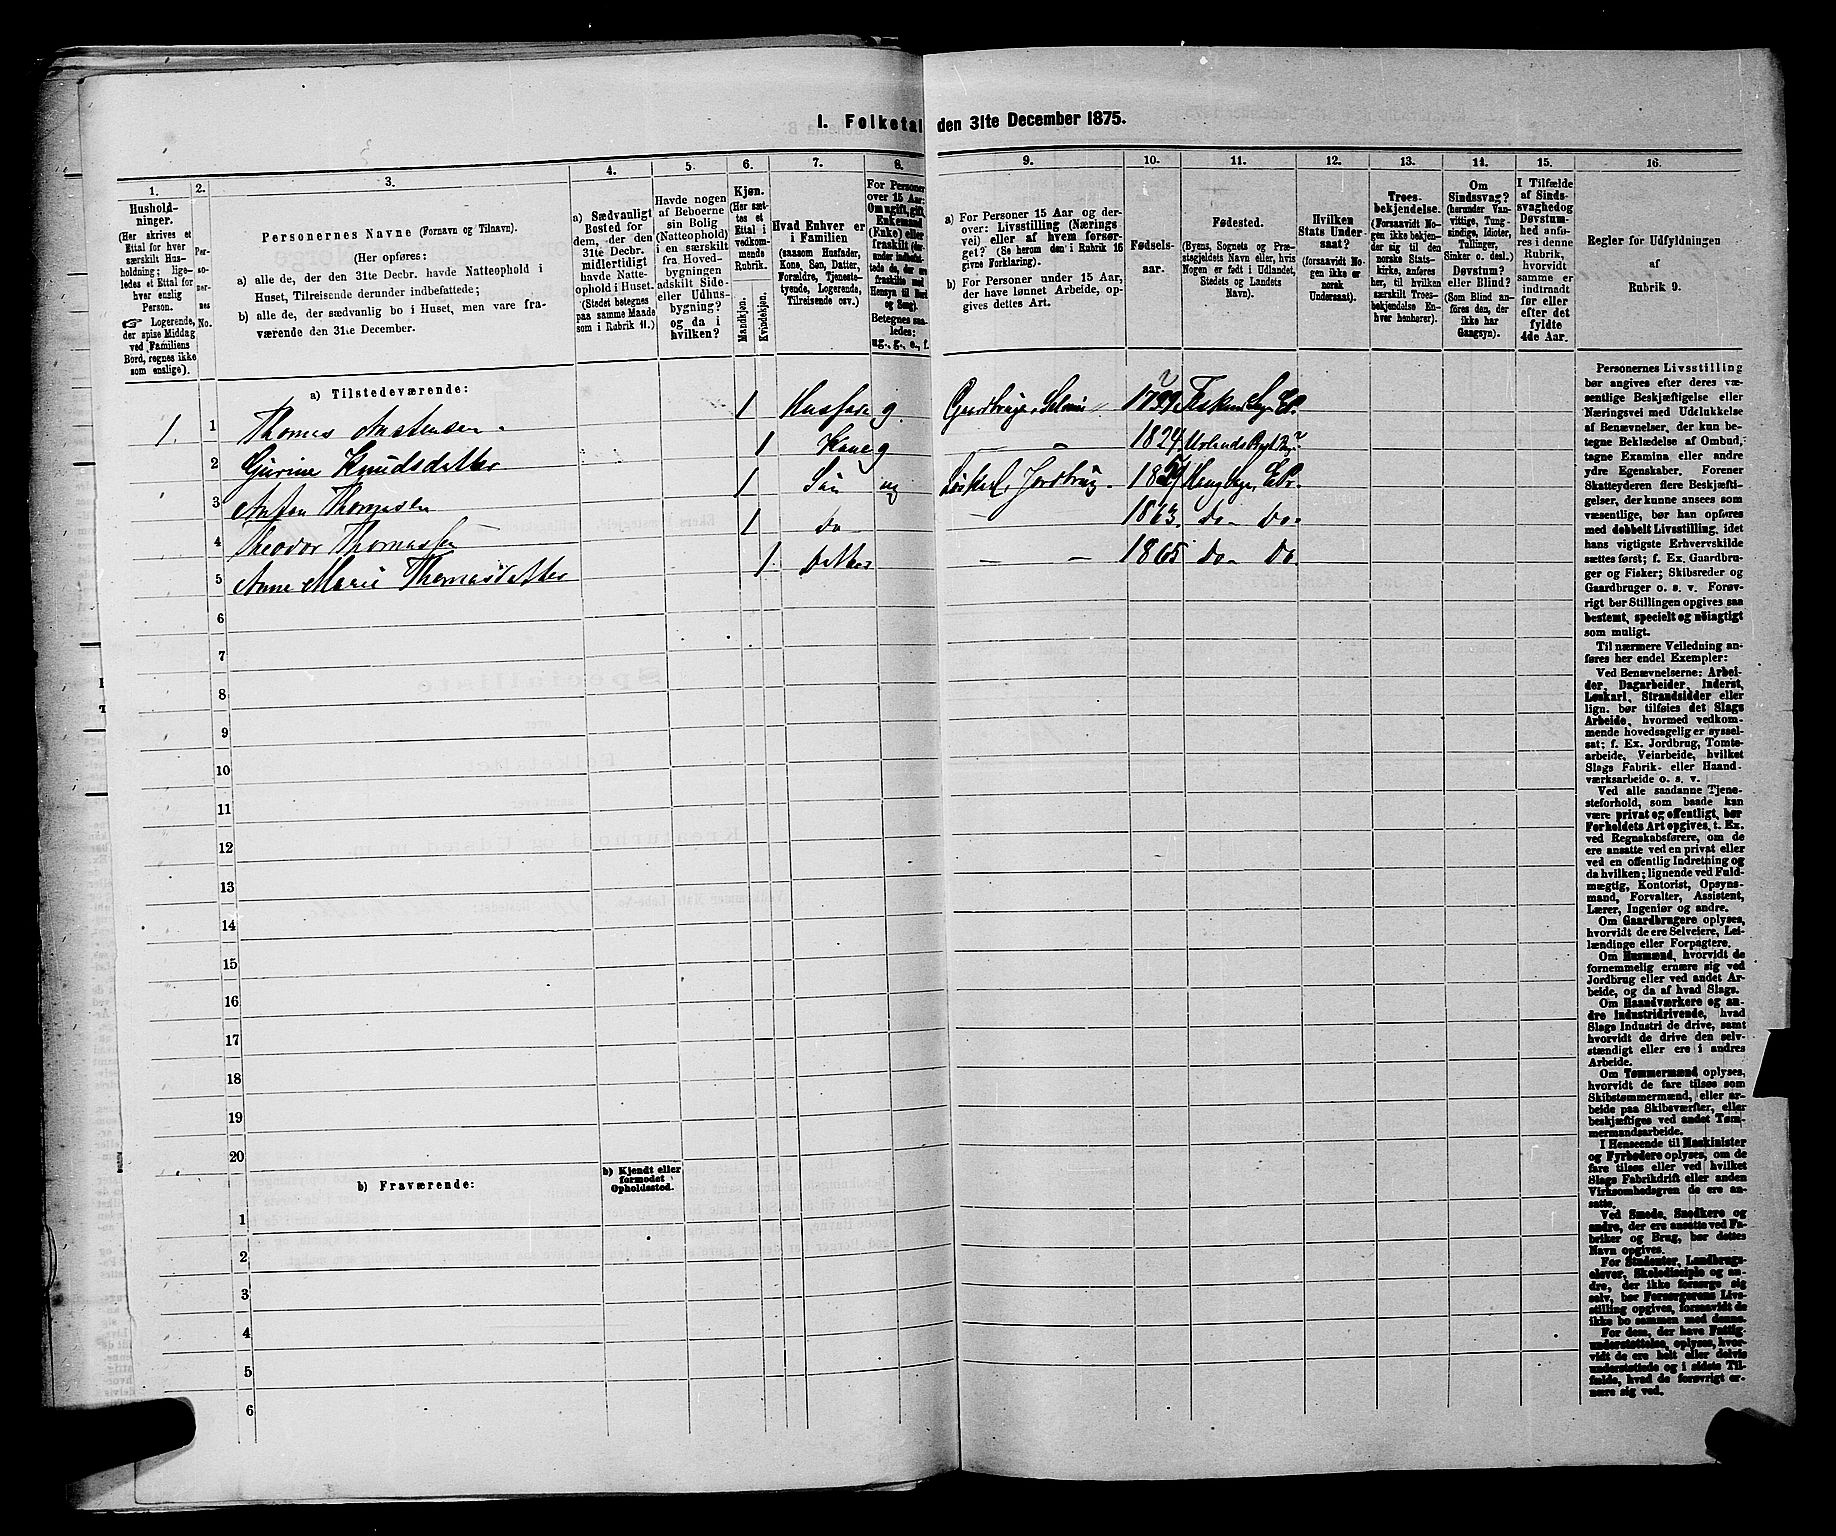 I. Folketal den 31te December 1875.
1. 2. 3. 4. 5. 6. 7. 8. 9. 10. 11. 12. 13. 14. 15. 16.
Hushold-
ninger.
(Her skrives et
Ettal for hver
særskilt Hus-
holdning; lige-
ledes et Ettal for
hver enslig
Person.
☞ Logerende,
der spise Middag
ved Familiens
Bord, regnes ikke
som enslige).
Per-
so-
ner-
nes
No.
Personernes Navne (Fornavn og Tilnavn).
(Her opføres:
a) alle de, der den 31te Decbr. havde Natteophold i
Huset, Tilreisende derunder indbefattede;
b) alle de, der sædvanlig bo i Huset, men vare fra-
værende den 31te December.
a) Sædvanligt
Bosted for
dem, der den
31te Decbr.
midlertidigt
havde Natte-
ophold i Huset.
(Stedet betegnes
paa samme Maade
som i Rubrik 11.)
Havde nogen
af Beboerne
sin Bolig
(Natteophold)
i en særskilt
fra Hoved-
bygningen
adskilt Side-
eller Udhus-
bygning?
og da i
hvilken?
Kjøn.
(Her sæt-
tes et
Ettal i
vedkom-
mende
Rubrik.
Mandkjøn.
Kvindekjøn.
Hvad Enhver er
i Familien
(saasom Husfader,
Kone, Søn, Datter,
Forældre, Tjeneste-
tyende, Logerende,
Tilreisende osv.)
For Personer
over 15 Aar:
Om ugift, gift,
Enkemand
(Enke) eller
fraskilt (der-
under indbefat-
tede de, der ere
fraskilte med
Hensyn til Bord
og Seng).
Betegnes saa-
ledes:
ug., g., e., f.
a) For Personer 15 Aar og der-
over: Livsstilling (Nærings-
vei) eller af hvem forsør-
get? (Se herom den i Rubrik 16
givne Forklaring).
b) For Personer under 15 Aar,
der have lønnet Arbeide, op-
gives dettes Art.
Fødsels-
aar.
Fødested.
(Byens, Sognets og Præ-
stegjeldets Navn eller, hvis
Nogen er født i Udlandet,
Stedets og Landets
Navn).
Hvilken
Stats Under-
saat?
(forsaavidt No-
gen ikke er
norsk
Undersaat).
Troes-
bekjendelse.
(Forsaavidt No-
gen ikke bekjen-
der sig til den
norske Stats-
kirke, anføres
her, til hvilken
særskilt Troes-
bekjendelse En-
hver henhører).
Om
Sindssvag?
(herunder Van-
vittige, Tung-
sindige, Idioter,
Tullinger,
Sinker o. desl.)
Døvstum?
eller Blind?
(Som Blind an-
føres den, der
ikke har
Gangsyn).
I Tilfælde
af Sinds-
svaghed og
Døvstum-
hed anfø-
res i denne
Rubrik,
hvorvidt
samme er
indtraadt
før eller
efter det
fyldte
4de Aar.
Regler for Udfyldningen
af
Rubrik 9.
a) Tilstedeværende:
1. 1 Thomas Austensen. 1 Husfader g Gaardbruger, Selveier 1789
2 Gurine Knudsdatter 1 Kone g 〃 1824
3 Anton Thomasen 1 Søn ug Løskarl, Jordbrug
4 Theodor Thomassen 1 do 1863. do – Do.
5 Anne Marie Thomasdatter 1 Datter – 1865 do – Do.
6
7
8
9
10
11
12
13
14
15
16
17
18
19
20
b) Fraværende:
b) Kjendt eller
formodet
Opholdssted.
1
2
3
4
5
6
Personernes Livsstilling
bør angives efter deres væ-
sentlige Beskjæftigelse eller
Næringsvei med Udelukkelse
af Benævnelser, der kun be-
tegne Beklædelse af Ombud,
tagne Examina eller andre
ydre Egenskaber. Forener
Skatteyderen flere Beskjæfti-
gelser, der kunne ansees som
væsentlige, bør han opføres
med dobbelt Livsstilling, idet
hans vigtigste Erhvervskilde
sættes først; f. Ex. Gaardbru-
ger og Fisker; Skibsreder og
Gaardbruger o. s. v. Forøv-
rigt bør Stillingen opgives saa
bestemt, specielt og nöiagtigt
som muligt.
Til nærmere Veiledning an-
føres her endel Exempler:
Ved Benævnelserne: Arbei-
der, Dagarbeider, Inderst,
Løskarl, Strandsidder eller
lign. bør tilføies det Slags
Arbeide, hvormed vedkom-
mende hovedsagelig er syssel-
sat; f. Ex. Jordbrug, Tomte-
arbeide, Veiarbeide, hvilket
Slags Fabrik- eller Haand-
værksarbeide o. s. v.
Ved alle saadanne Tjene-
steforhold, som baade kan
være privat og offentligt, bør
Forholdets Art opgives, t. Ex.
ved Regnskabsførere, om de
ere ansatte ved en privat eller
ved en offentlig Indretning og
da hvilken; lignende ved Fuld-
mægtig, Kontorist, Opsyns-
mand, Forvalter, Assistent,
Lærer, Ingeniør og andre.
Om Gaardbrugere oplyses,
hvorvidt de ere Selveiere, Lei-
lændinge eller Forpagtere.
Om Husmænd, hvorvidt de
fornemmelig ernære sig ved
Jordbrug eller ved andet Ar-
beide, og da af hvad Slags.
Om Haandværkere og an-
dre Industridrivende, hvad
Slags Industri de drive, samt
hvorvidt de drive den selv-
stændigt eller ere i andres
Arbeide.
Om Tømmermænd oplyses,
hvorvidt de fare tilsøs som
Skibstømmermænd, eller ar-
beide paa Skibsværfter, eller
beskjæftiges ved andet Tøm-
mermandsarbeide.
I Henseende til Maskinister
og Fyrbødere oplyses, om de
fare tilsøs eller ved hvilket
Slags Fabrikdrift eller anden
Virksomhedsgren de ere an-
satte.
Ved Smede, Snedkere og
andre, der ere ansatte ved Fa-
briker og Brug, bør dettes
Navn opgives.
For Studenter, Landbrugs-
elever, Skoledisciple og an-
dre, der ikke forsørge sig
selv, bør Forsørgerens Livs-
stilling opgives, forsaavidt de
ikke bo sammen med denne.
For dem, der have Fattig-
understøttelse, oplyses, hvor-
vidt de ere helt eller delvis
understøttede og i sidste Til-
fælde, hvad de forøvrigt er-
nære sig ved.